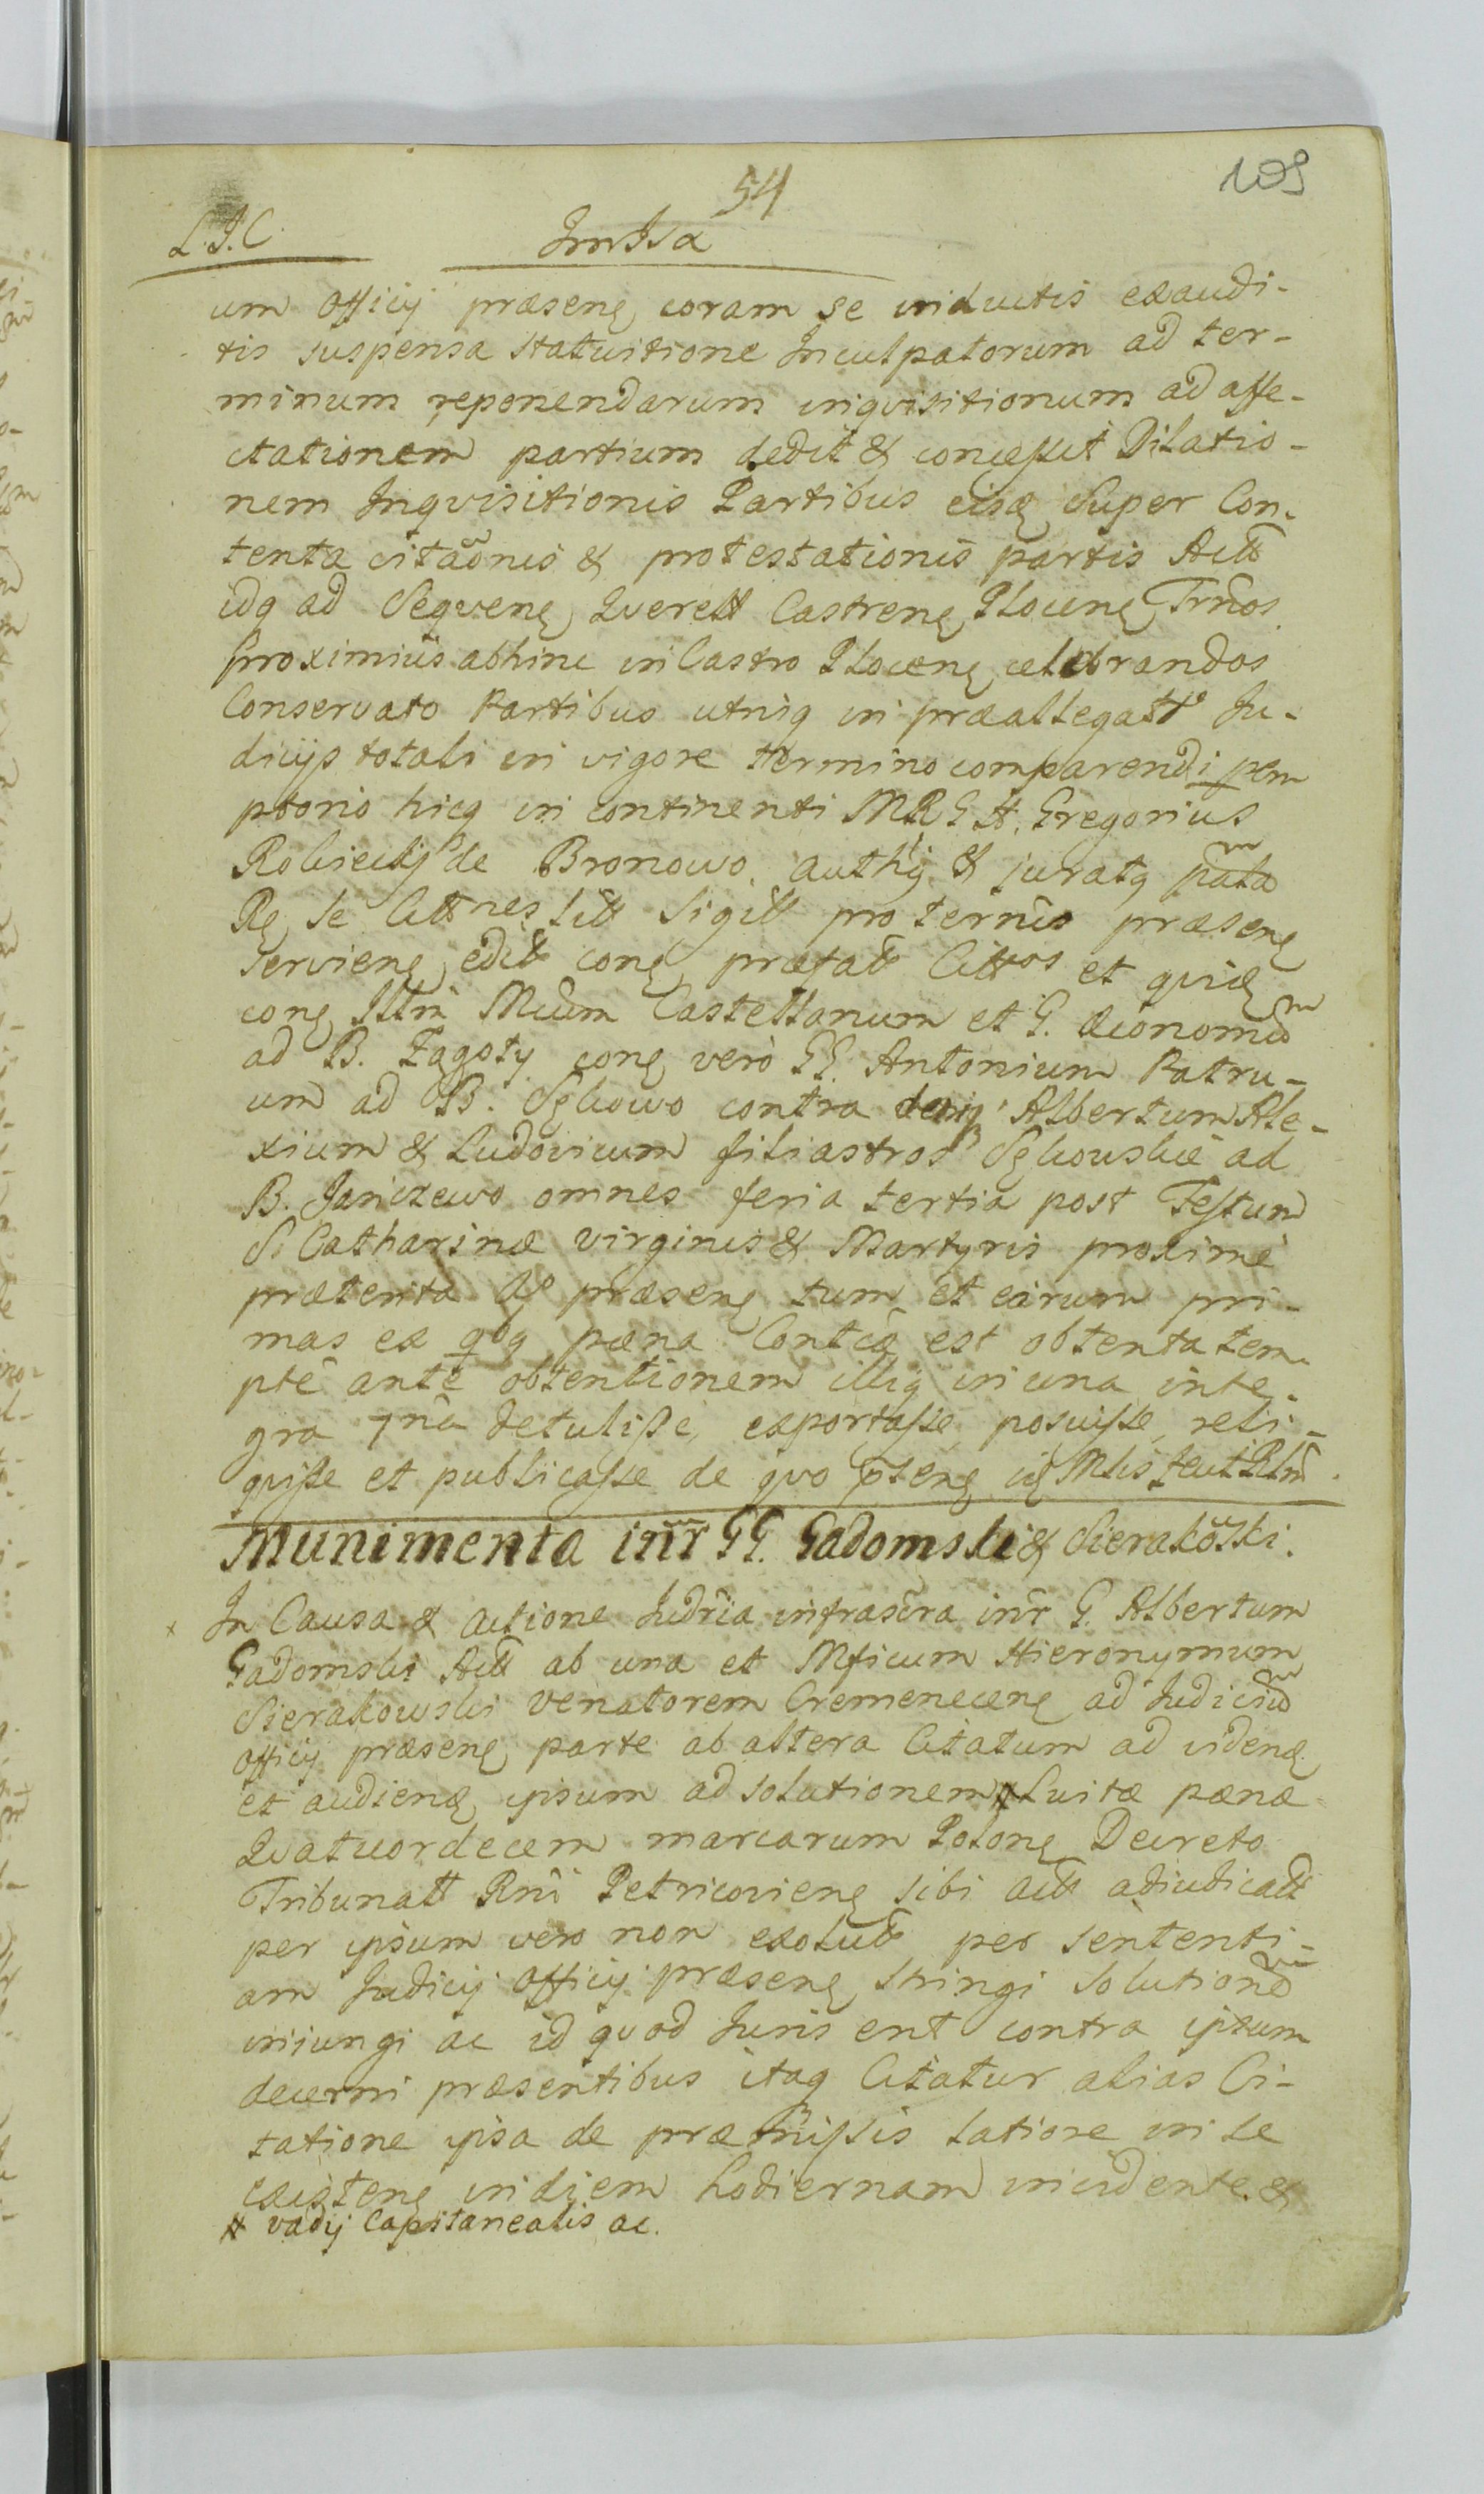 54
109
L.J.C.
um Officij præsenȩ coram se inductis exaudi-
tis suspensa statuitione Inculpatorum ad ter-
minum reponendarum inqvisitionum ad affe-
ctationem partium dedit & concessit Dilatio-
nem Inqvisitionis Partibus eisȩ Super Con-
tenta citaõnis & protestationis partis Actt
idq ad Seqvenȩ Qverell Castrenȩ Plocenȩ Trños
proximius abhinc in Castro Plocenȩ celebrandos
Conservato Partibus utrisq in præallegatt Ju-
dicijs totali in vigore termino comparendi pem
ptorio hicq in continenti MRGH. Gregorius
de Bronowo auth & juratq pata
Rȩ se Cittnes litt Sigill pro ternis præsenȩ
Servienȩ edit conȩ præfatt Cittos et qvidȩ
conȩ Illm Mcum Castellanum et G. Æconomum
ad B. Zągoty conȩ verò GG. Antonium Patru-
um ad B. contra Albertum Ale-
xium & Ludovicum filiastros ad
B. Janczewo omnes feria tertia post Festum
S. Catharinæ Virginis & Martyris proximè
præterita præsenȩ tum et earum pri-
mas ex qbq pœna Contcæ est obtenta tem-
ptē ante obtentionem illiq in una inte-
gra detulisse, exportasse, posuisse, reli-
qvisse et publicasse de qvo
Munimenta intr GG. Gadomski & Sierakõski.
x In Causa & actione Judria infrascra intr G. Albertum
Gadomski Actt ab una et Mficum Hieronymum
Sierakowski Venatorem Cremenecenȩ ad Judicium
officij præsenȩ parte ab altera Citatum ad videnȩ
et audienȩ ipsum ad solutionem x Luitæ pœnæ
Qvatuordecem marcarum Polonȩ Decreto
Tribunatt Rni Petricovienȩ sibi actt adiudicatt
per ipsum vero non exolutt per sententi-
am Judicij officij præsenȩ stringi solutionem
iniungi ac id qvod Juris erit contra ipsum
decerni præsentibus itaq Citatur alias Ci-
tatione ipsa de præmissis latiore in se
existenȩ in diem hodiernam incidente &
x vadij Capitanealis ac.